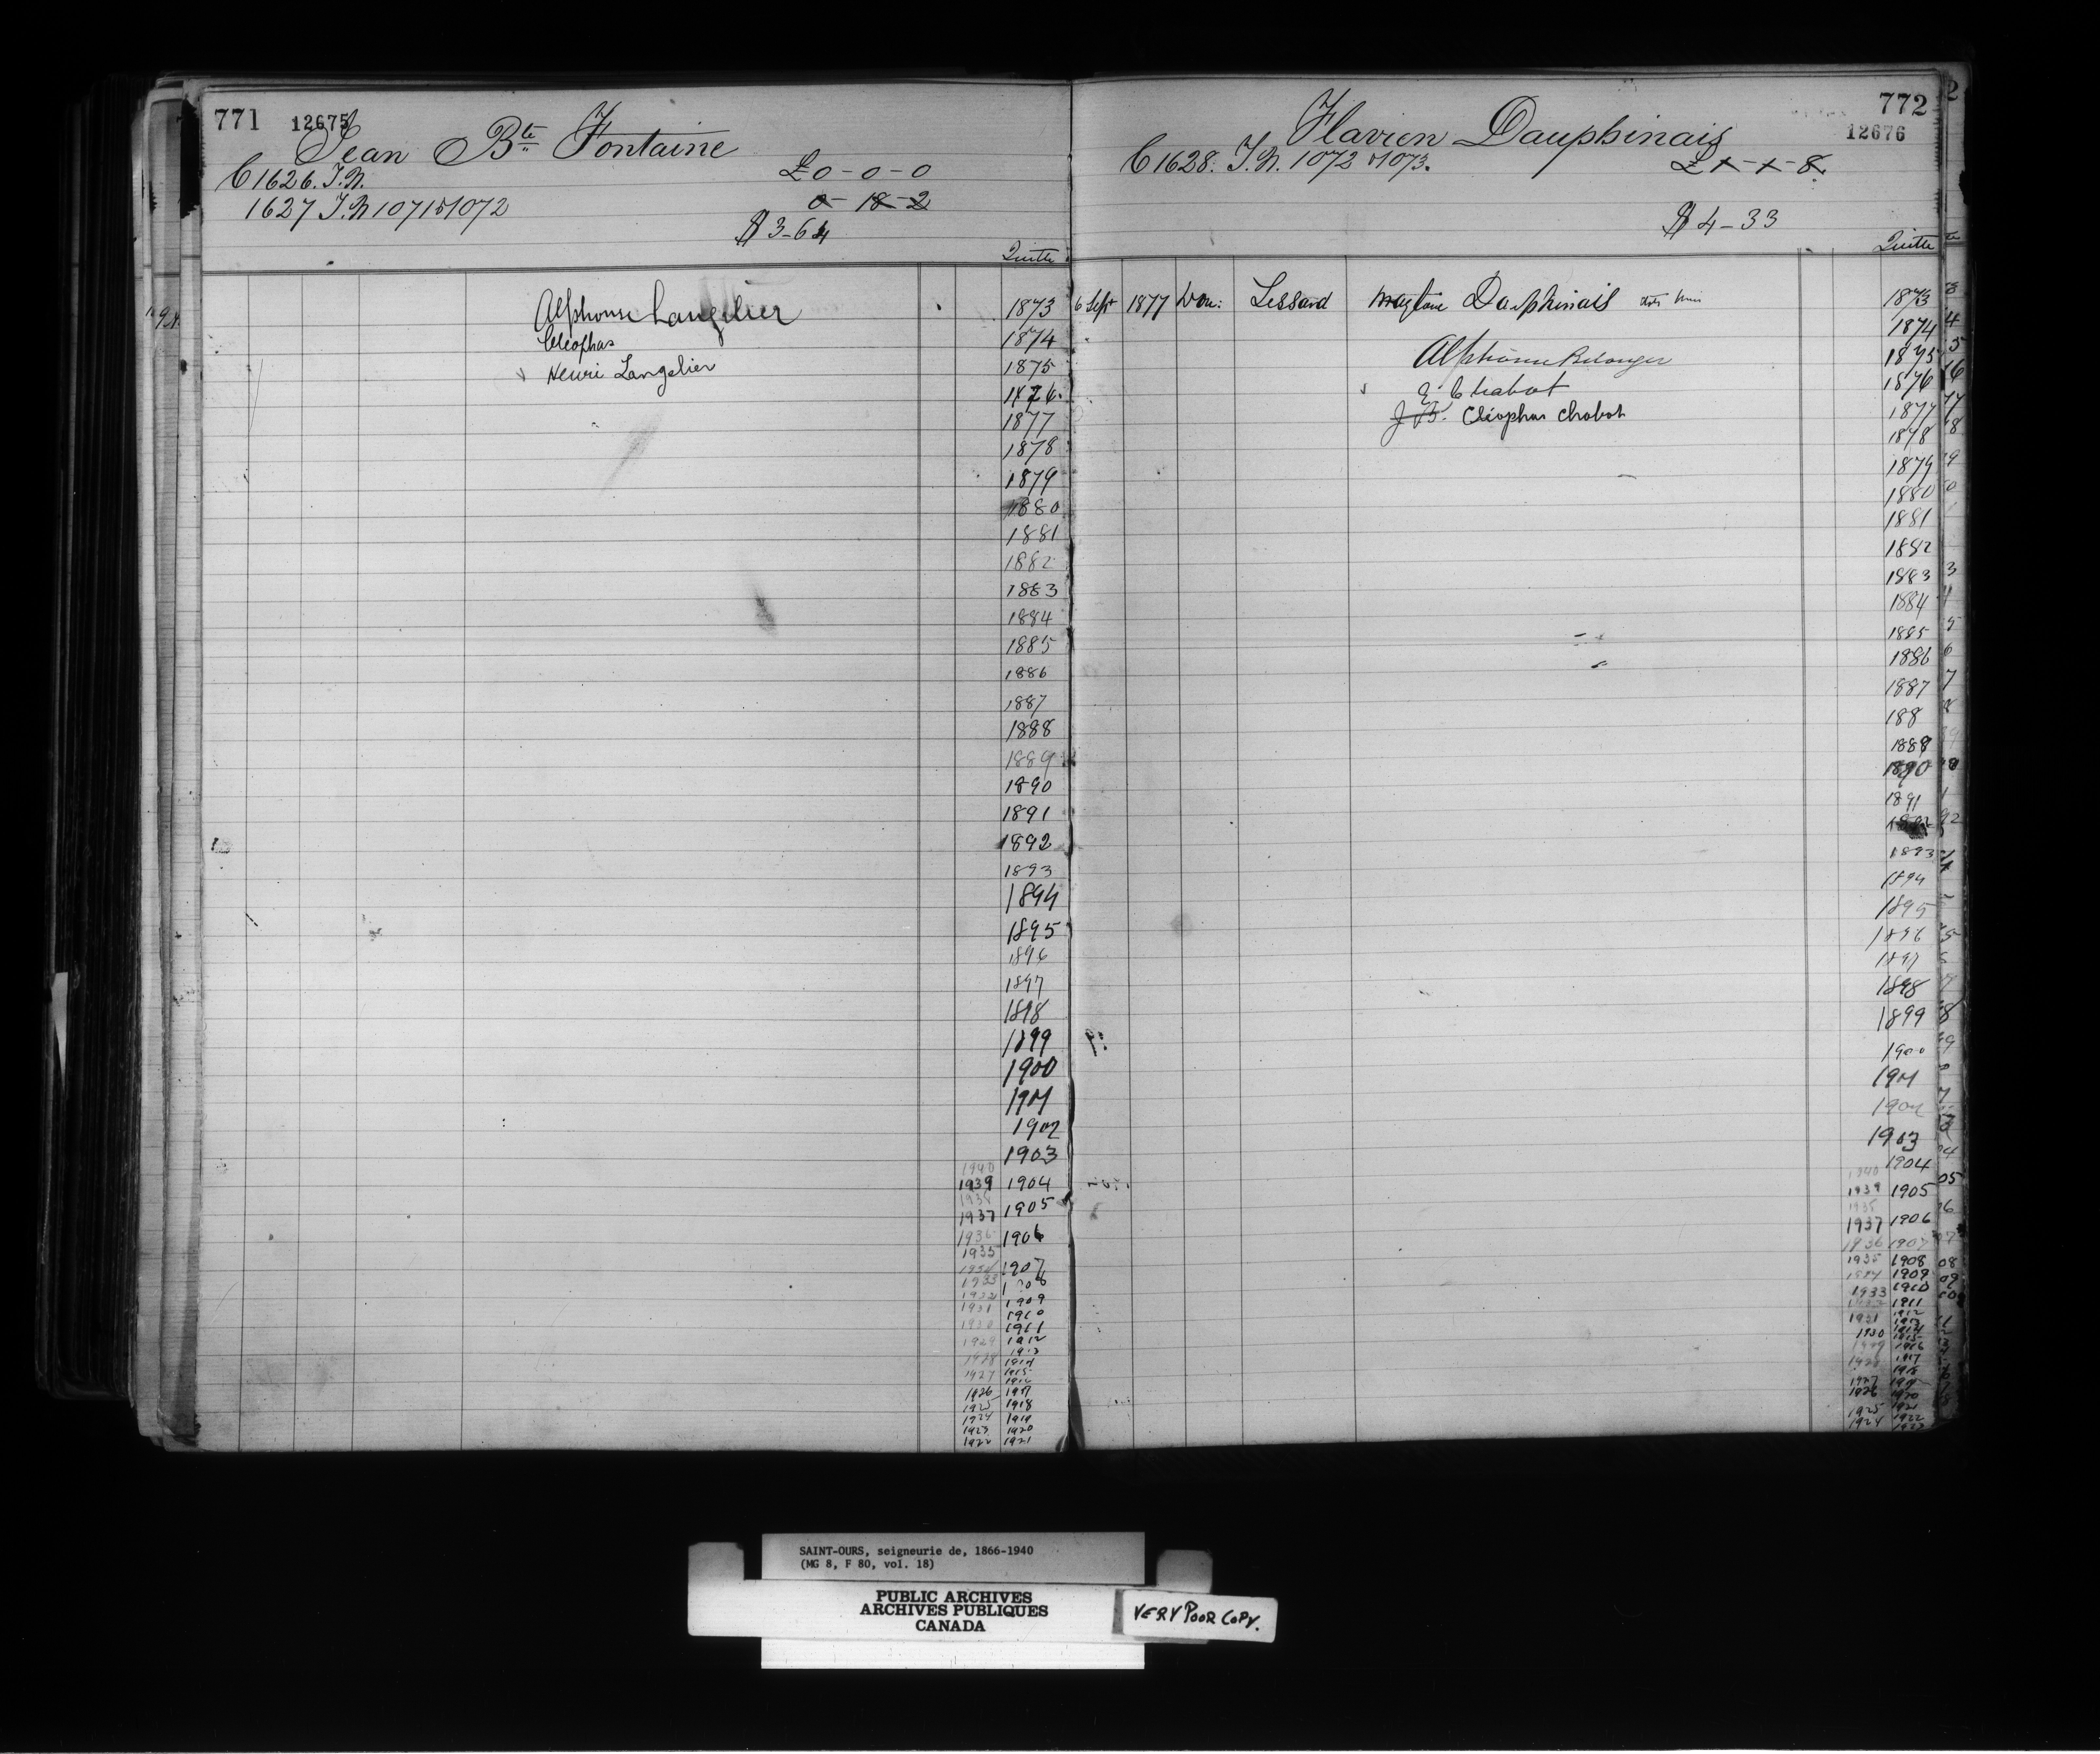 771 12675
Jean Bte Fontaine
C 1626. T.N. £ 0-0-0
1627 T.N 1071 & 1072 0-18-2
$ 3-64
Quitte
Alphonse Langelier 1873
Cléophas 1874
Henri Langelier 1875
1876
1877
1878
1879
1880
1881
1882
1883
1884
1885
1886
1887
1888
1889
1890
1891
1892
1893
1894
1895
1896
1897
1898
1899
1900
1901
1902
1903
1940
1939 1904
1938
1937 1905
1936 1906
1935
1934 1907
1933 1908
1932 1909
1931 1910
1930 1911
1929 1912
1913
1928 1914
1927 1915
1916
1926 1917
1925 1918
1924 1919
1923 1920
1922 1921
772
12676
Flavien Dauphinais
C 1628. T.N. 1072 & 1073. £ 1-1-8
$ 4-33
Quitte
6 Sept 1877 Don: Lessard Dauphinais 1873
1874
Alphonse Belanger 1875
E. Chabot 1876
J.B. Cléophas Chabot 1877
1878
1879
1880
1881
1882
1883
1884
1885
1886
1887
188
1889
1890
1891
1892
1893
1894
1895
1896
1897
1898
1899
1900
1901
1902
1903
1940 1904
1939 1905
1937 1906
1936 1907
1935 1908
1934 1909
1933 1910
1932 1911
1912
1931 1913
1930 1914
1915
1929 1916
1928 1917
1918
1927 1919
1926 1920
1925 1921
1924 1922
1923
SAINT-OURS, seigneurie de, 1866-1940
(MG 8, F 80, vol. 18)
PUBLIC ARCHIVES
ARCHIVES PUBLIQUES
CANADA
VERY POOR COPY.